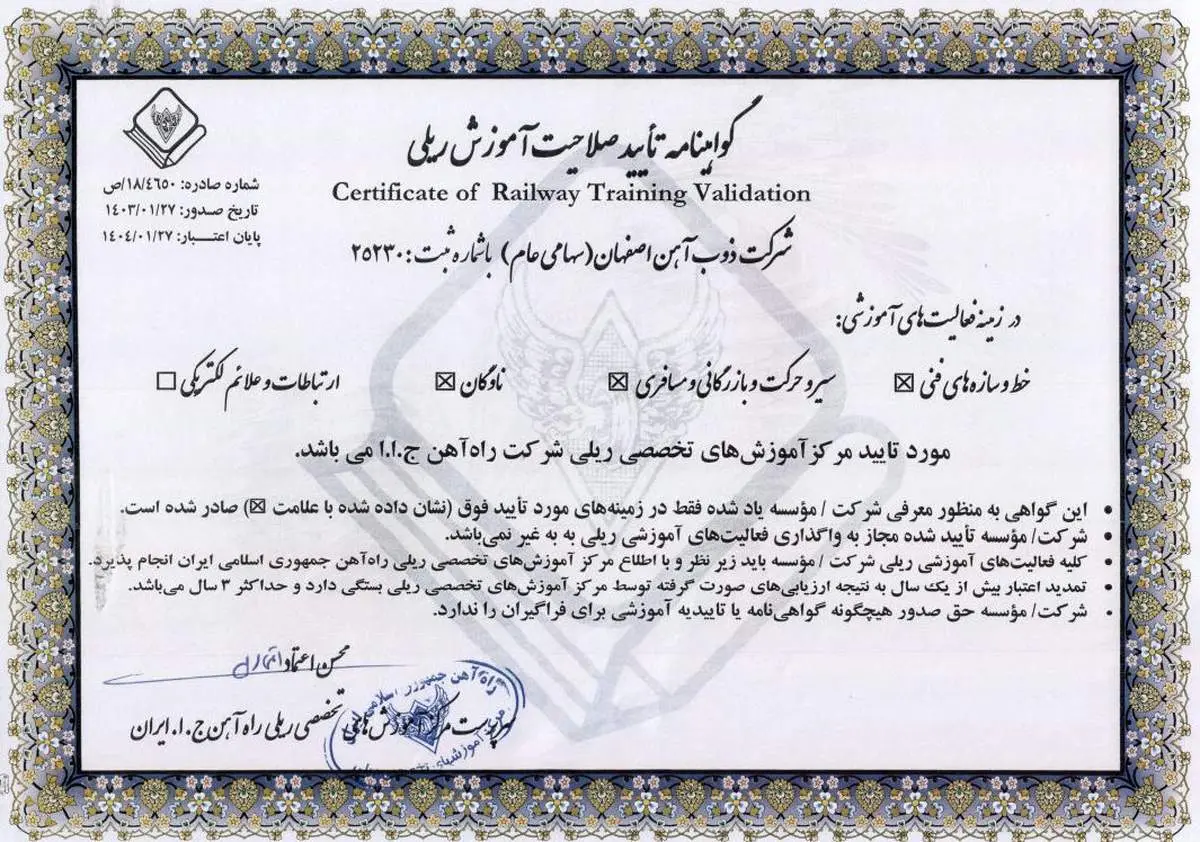 گواهینامه تأیید صلاحیت آموزش ریلی
Certificate of Railway Training Validation
شماره صادره: ١٨/٤٦٥٠/ص
تاریخ صدور: ١٤٠٣/٠١/٢٧
پایان اعتبـــــار: ١٤٠٤/٠١/٢٧
شرکت ذوب آهن اصفهان (سهامی عام) باشماره ثبت: ٢٥٢٣٠
در زمینه فعالیت‌های آموزشی:
خط و سازه‌های فنی ☒ سیر و حرکت و بازرگانی و مسافری ☒ ناوگان ☒ ارتباطات و علائم الکتریکی ☐
مورد تایید مرکز آموزش‌های تخصصی ریلی شرکت راه‌آهن ج.ا.ا می باشد.
• این گواهی به منظور معرفی شرکت / مؤسسه یاد شده فقط در زمینه‌های مورد تأیید فوق (نشان داده شده با علامت ☒) صادر شده است.
• شرکت/ مؤسسه تأیید شده مجاز به واگذاری فعالیت‌های آموزشی ریلی به به غیر نمی‌باشد.
• کلیه فعالیت‌های آموزشی ریلی شرکت / مؤسسه باید زیر نظر و با اطلاع مرکز آموزش‌های تخصصی ریلی راه‌آهن جمهوری اسلامی ایران انجام پذیرد.
• تمدید اعتبار بیش از یک سال به نتیجه ارزیابی‌های صورت گرفته توسط مرکز آموزش‌های تخصصی ریلی بستگی دارد و حداکثر ٣ سال می‌باشد.
• شرکت/ مؤسسه حق صدور هیچگونه گواهی‌نامه یا تاییدیه آموزشی برای فراگیران را ندارد.
محسن اعتماد
سرپرست مرکز آموزش‌های تخصصی ریلی راه آهن ج.ا.ایران
راه آهن جمهوری اسلامی